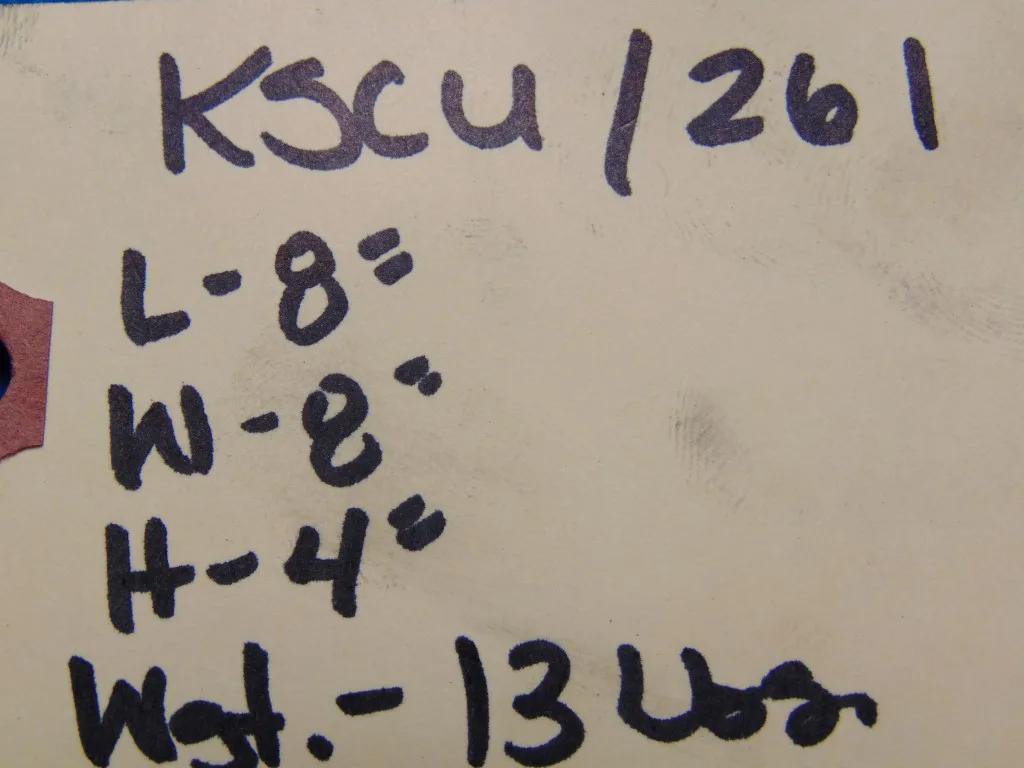 KSCU/261
L-8"
W-8"
H-4"
Wgt.-13 lbs.